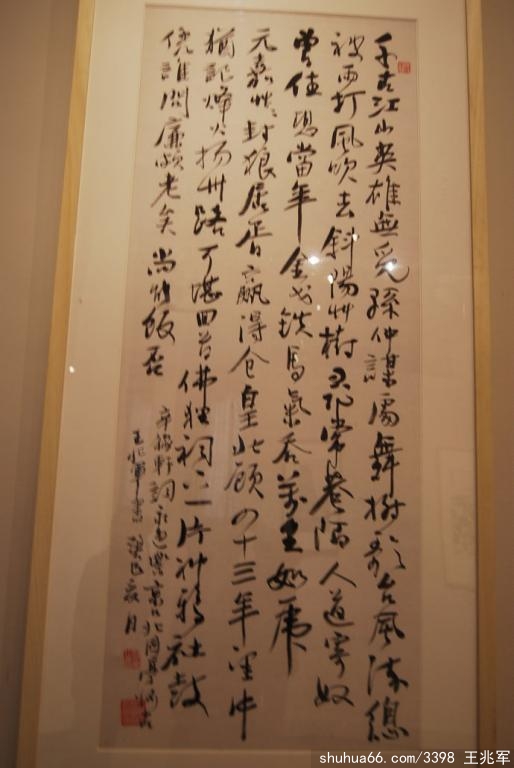 千古江山英雄無覓孫仲謀處舞榭歌台風流總
被雨打風吹去斜陽艸樹尋常巷陌人道寄奴
曾住想當年金戈鐵馬氣吞萬里如虎
元嘉艸艸封狼居胥贏得倉皇北顧四十三年望中
猶記烽火揚州路可堪回首佛狸祠下一片神鴉社鼓
憑誰問廉頗老矣尚能飯否
辛稼軒詞永遇樂京口北固亭懷古
王兆軍書癸巳夏月
shuhua66.com/3398 王兆军